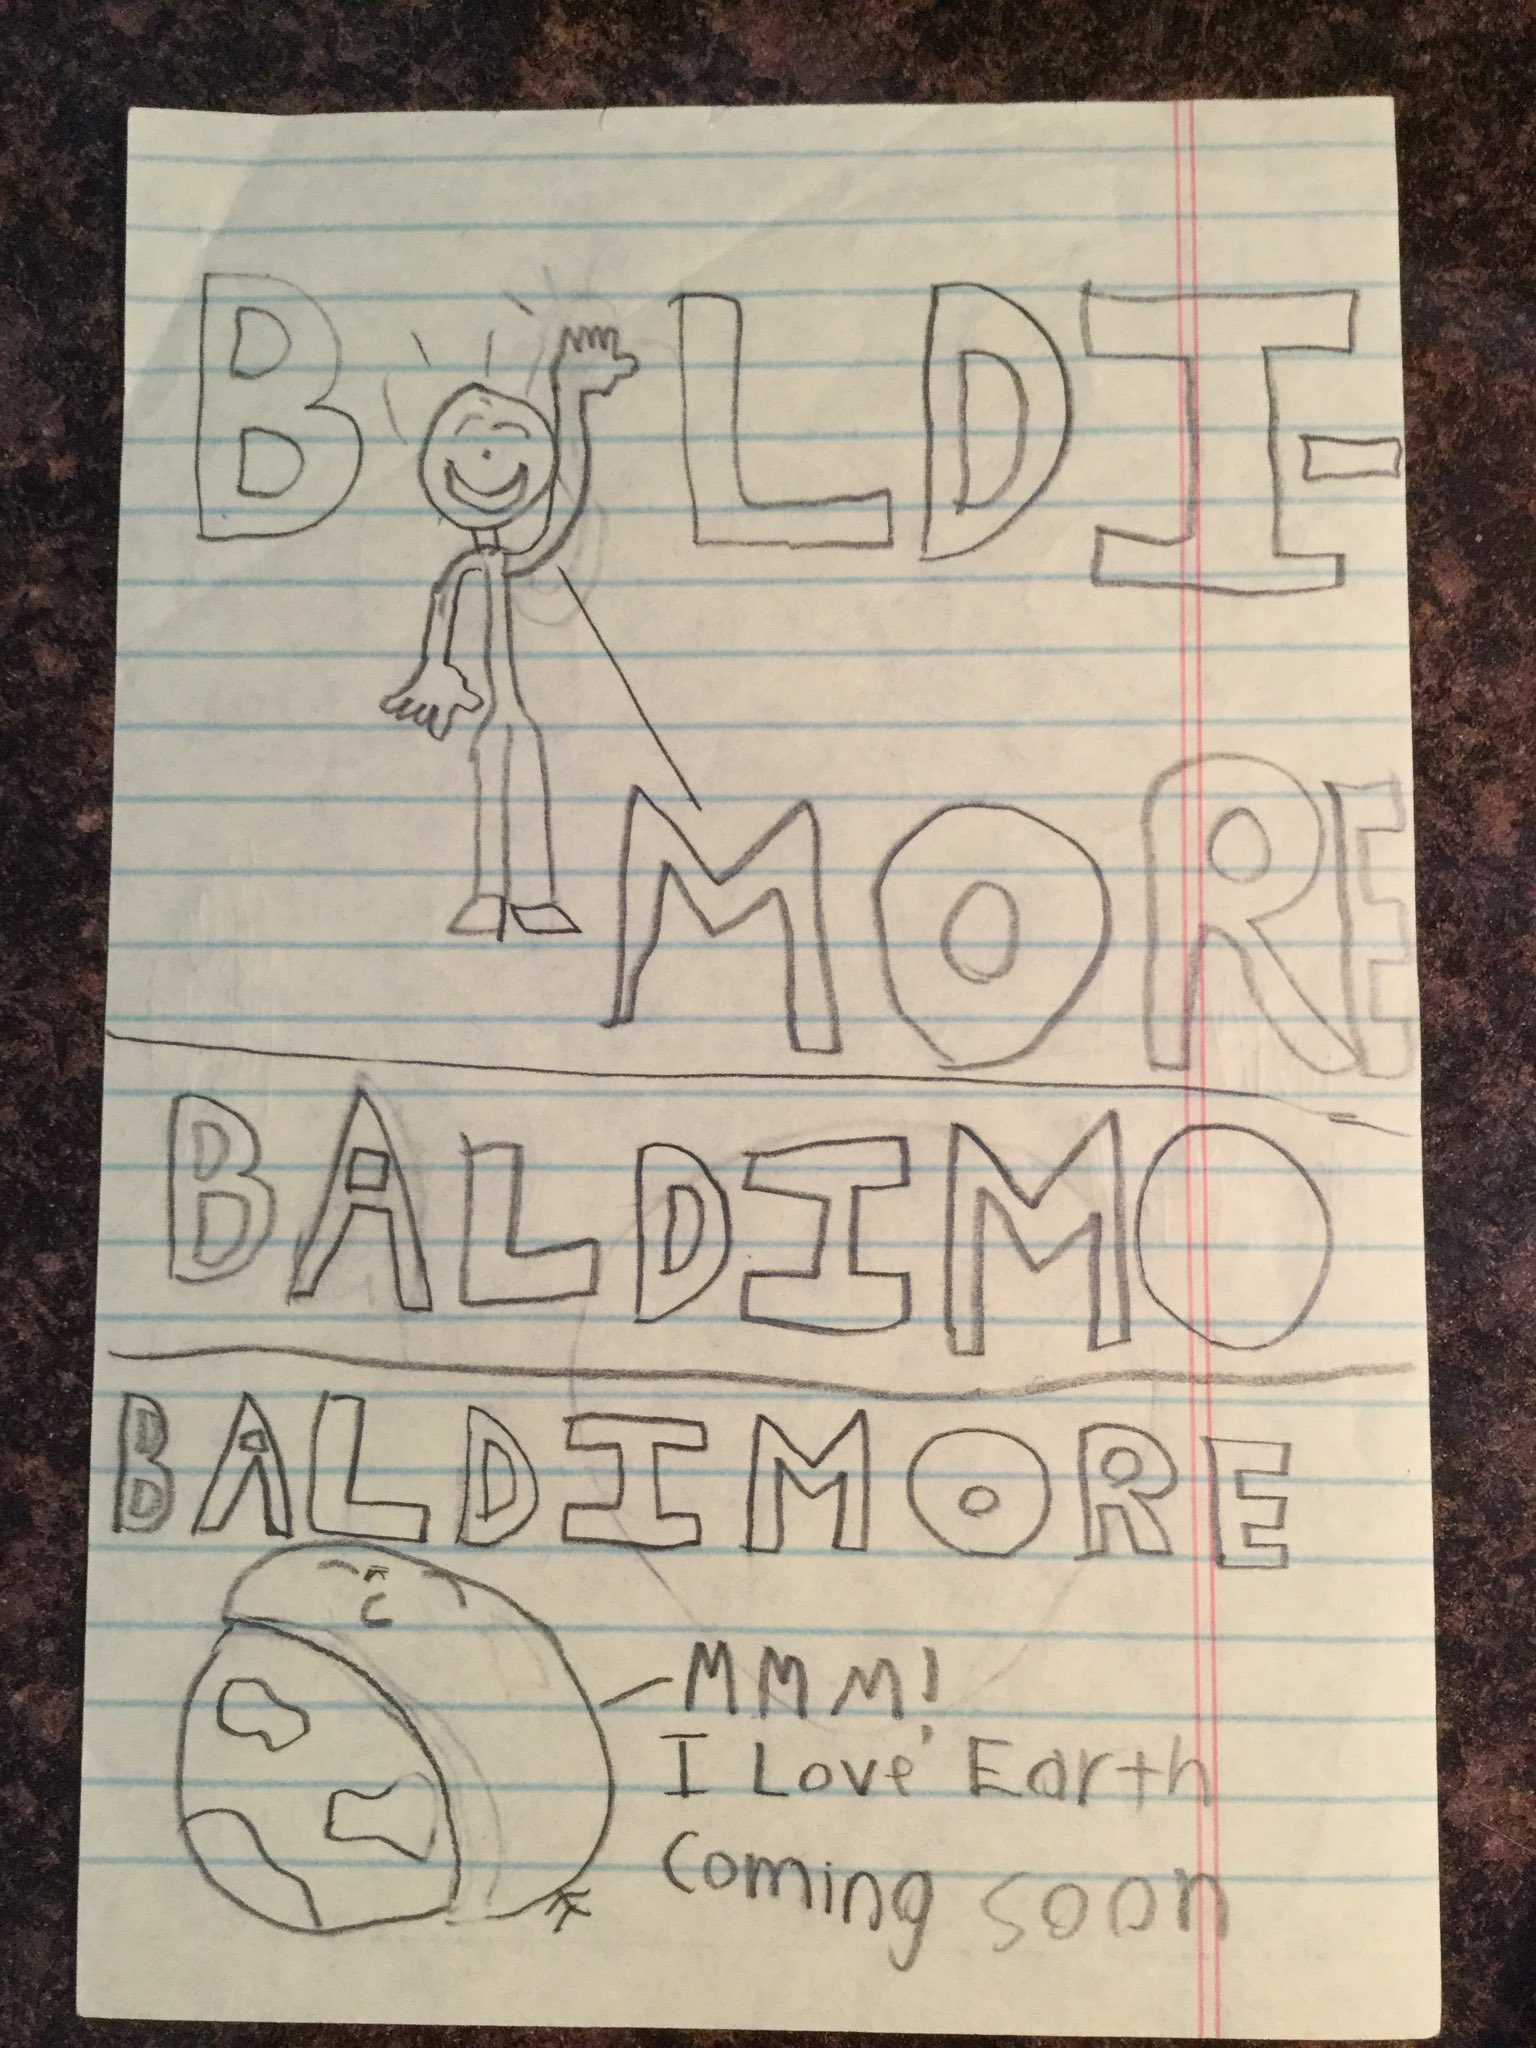 B LDI-
MORE
BALDIMO
BALDIMORE
MMM!
I Love Earth
Coming soon